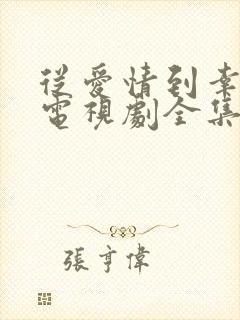 從愛情到幸
電視劇全集
張亨偉